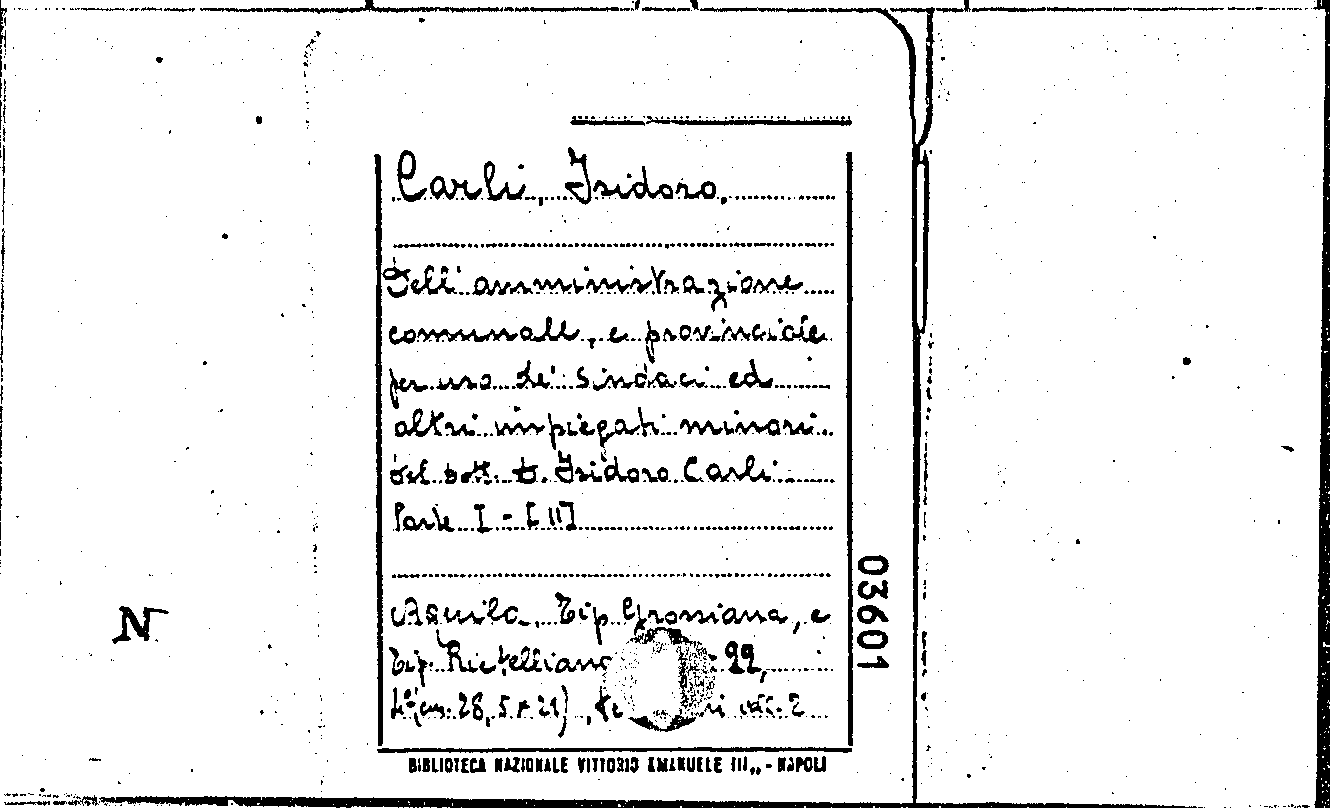 Carli, Isidoro,
Dell'amministrazione
comunale, e provinciale
per uso de' Sindaci ed
altri impiegati minori
del dott. D. Isidoro Carli
Parte I - [II]
Aquila, Tip. Grossiana, e
Tip. Rietelliana 22,
4°, (cm. 28,5 x 21), 2
BIBLIOTECA NAZIONALE VITTORIO EMANUELE III„ - NAPOLI
036601
N